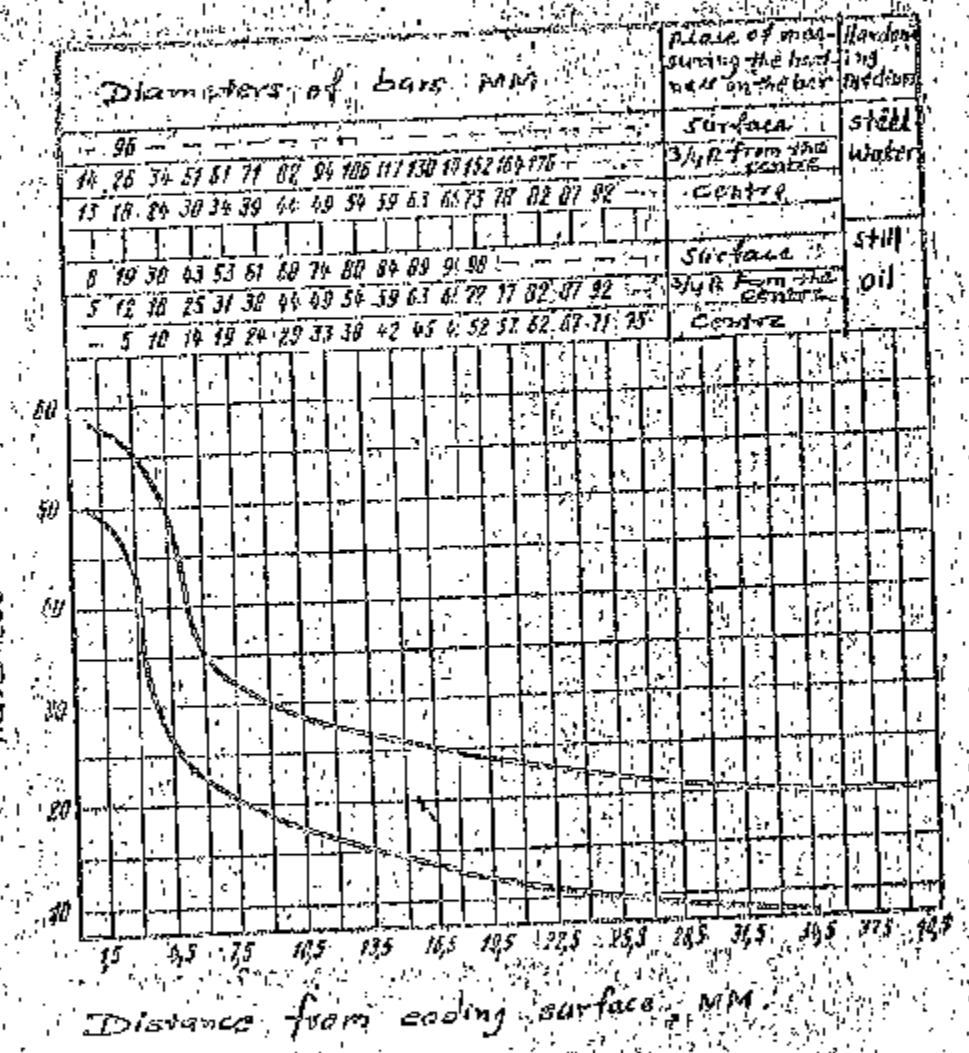 Diameters of bars MM
place of mea-
suring the hard-
ness on the bar
Harden-
ing
medium
- 96 - - - - - - - - - - - - - - surface
still
water
14 26 34 51 61 71 82 94 106 117 130 152 164 176 3/4R from the centre
13 18 24 30 34 39 44 49 54 59 63 73 78 82 87 92 centre
8 19 30 43 53 61 68 74 80 84 89 98 surface
still
oil
5 12 18 25 31 38 44 49 54 59 63 77 82 87 92 3/4R from the centre
- 5 10 14 19 24 29 33 38 42 45 52 57 62 67 71 75 centre
60
50
40
30
20
10
1,5 4,5 7,5 10,5 13,5 16,5 19,5 22,5 25,5 28,5 31,5 34,5 37,5 40,5
Distance from ending surface, MM.